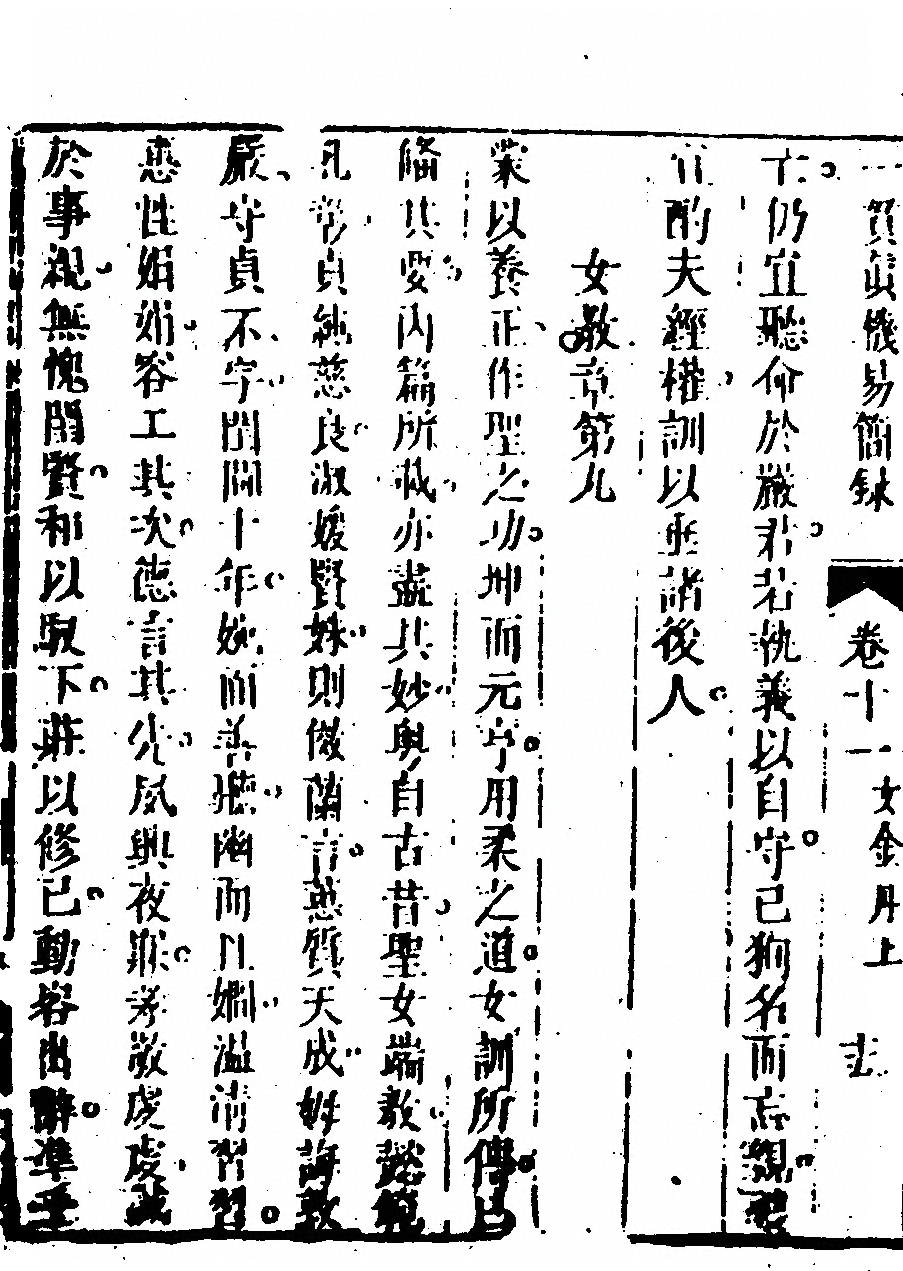 質眞機易簡錄 卷十一 女金丹上
亡仍宜聽命於嚴君若執義以自守已狥名而忘親聖
盲酌夫經權訓以垂諸後人
女敎章第九
蒙以養正作聖之功坤而元亨用柔之道女訓所傳已
備其要內篇所載亦盡其妙與自古昔聖女端敎懿範
凡常貞純慈良淑媛賢姝則儆蘭言蕙質天成姆誨敦
嚴守貞不字閨閫十年婉而善聽幽而且嫻溫清習習
惠性娟娟容工其次德言其先夙興夜寐孝敬虔虔誠
於事親無愧閨賢和以馭下莊以修己動容出辭準乎